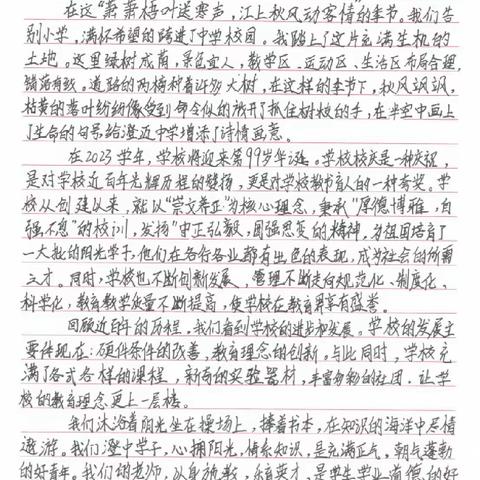 在这“萧萧梧叶送寒声，江上秋风动客情”的季节。我们告
别小学，满怀希望的踏进了中学校园，我踏上了这片充满生机的
土地。这里绿树成荫，景色宜人，教学区、运动区、生活区布局合理，
错落有致。道路的两旁种着许多大树，在这样的季节下，秋风飒飒，
枯黄的落叶纷纷像受到命令似的放开了抓住树枝的手，在半空中画上
了生命的句号给澄迈中学增添了诗情画意。
在2023学年，学校将迎来第99岁华诞。学校校庆是一种庆祝，
是对学校近百年光辉历程的赞扬，更是对学校教书育人的一种夸奖。学
校从创建以来，就以“崇文养正”为核心理念，秉承“厚德博雅，自
强不息”的校训，发扬“中正弘毅，图强思变的精神，为祖国培育了
一大批的阳光学子，他们在各行各业都有出色的表现，成为社会的所需
之才。同时，学校也不断创新发展，管理不断走向规范化、制度化、
科学化，教育教学质量不断提高，使学校在教育界享有盛誉。
回顾近百年的历程，我们看到学校的进步和发展。学校的发展主
要体现在：硬件条件的改善，教育理念的创新，与此同时，学校充
满了各式各样的课程，新奇的实验器材，丰富多彩的社团，让学
校的教育理念更上一层楼。
我们沐浴着阳光坐在操场上，捧着书本，在知识的海洋中尽情
遨游。我们澄中学子，心拥阳光，情系知识，是充满正气，朝气蓬勃
的好青年。我们的老师，以身施教，乐育英才，是学生学业道德的好